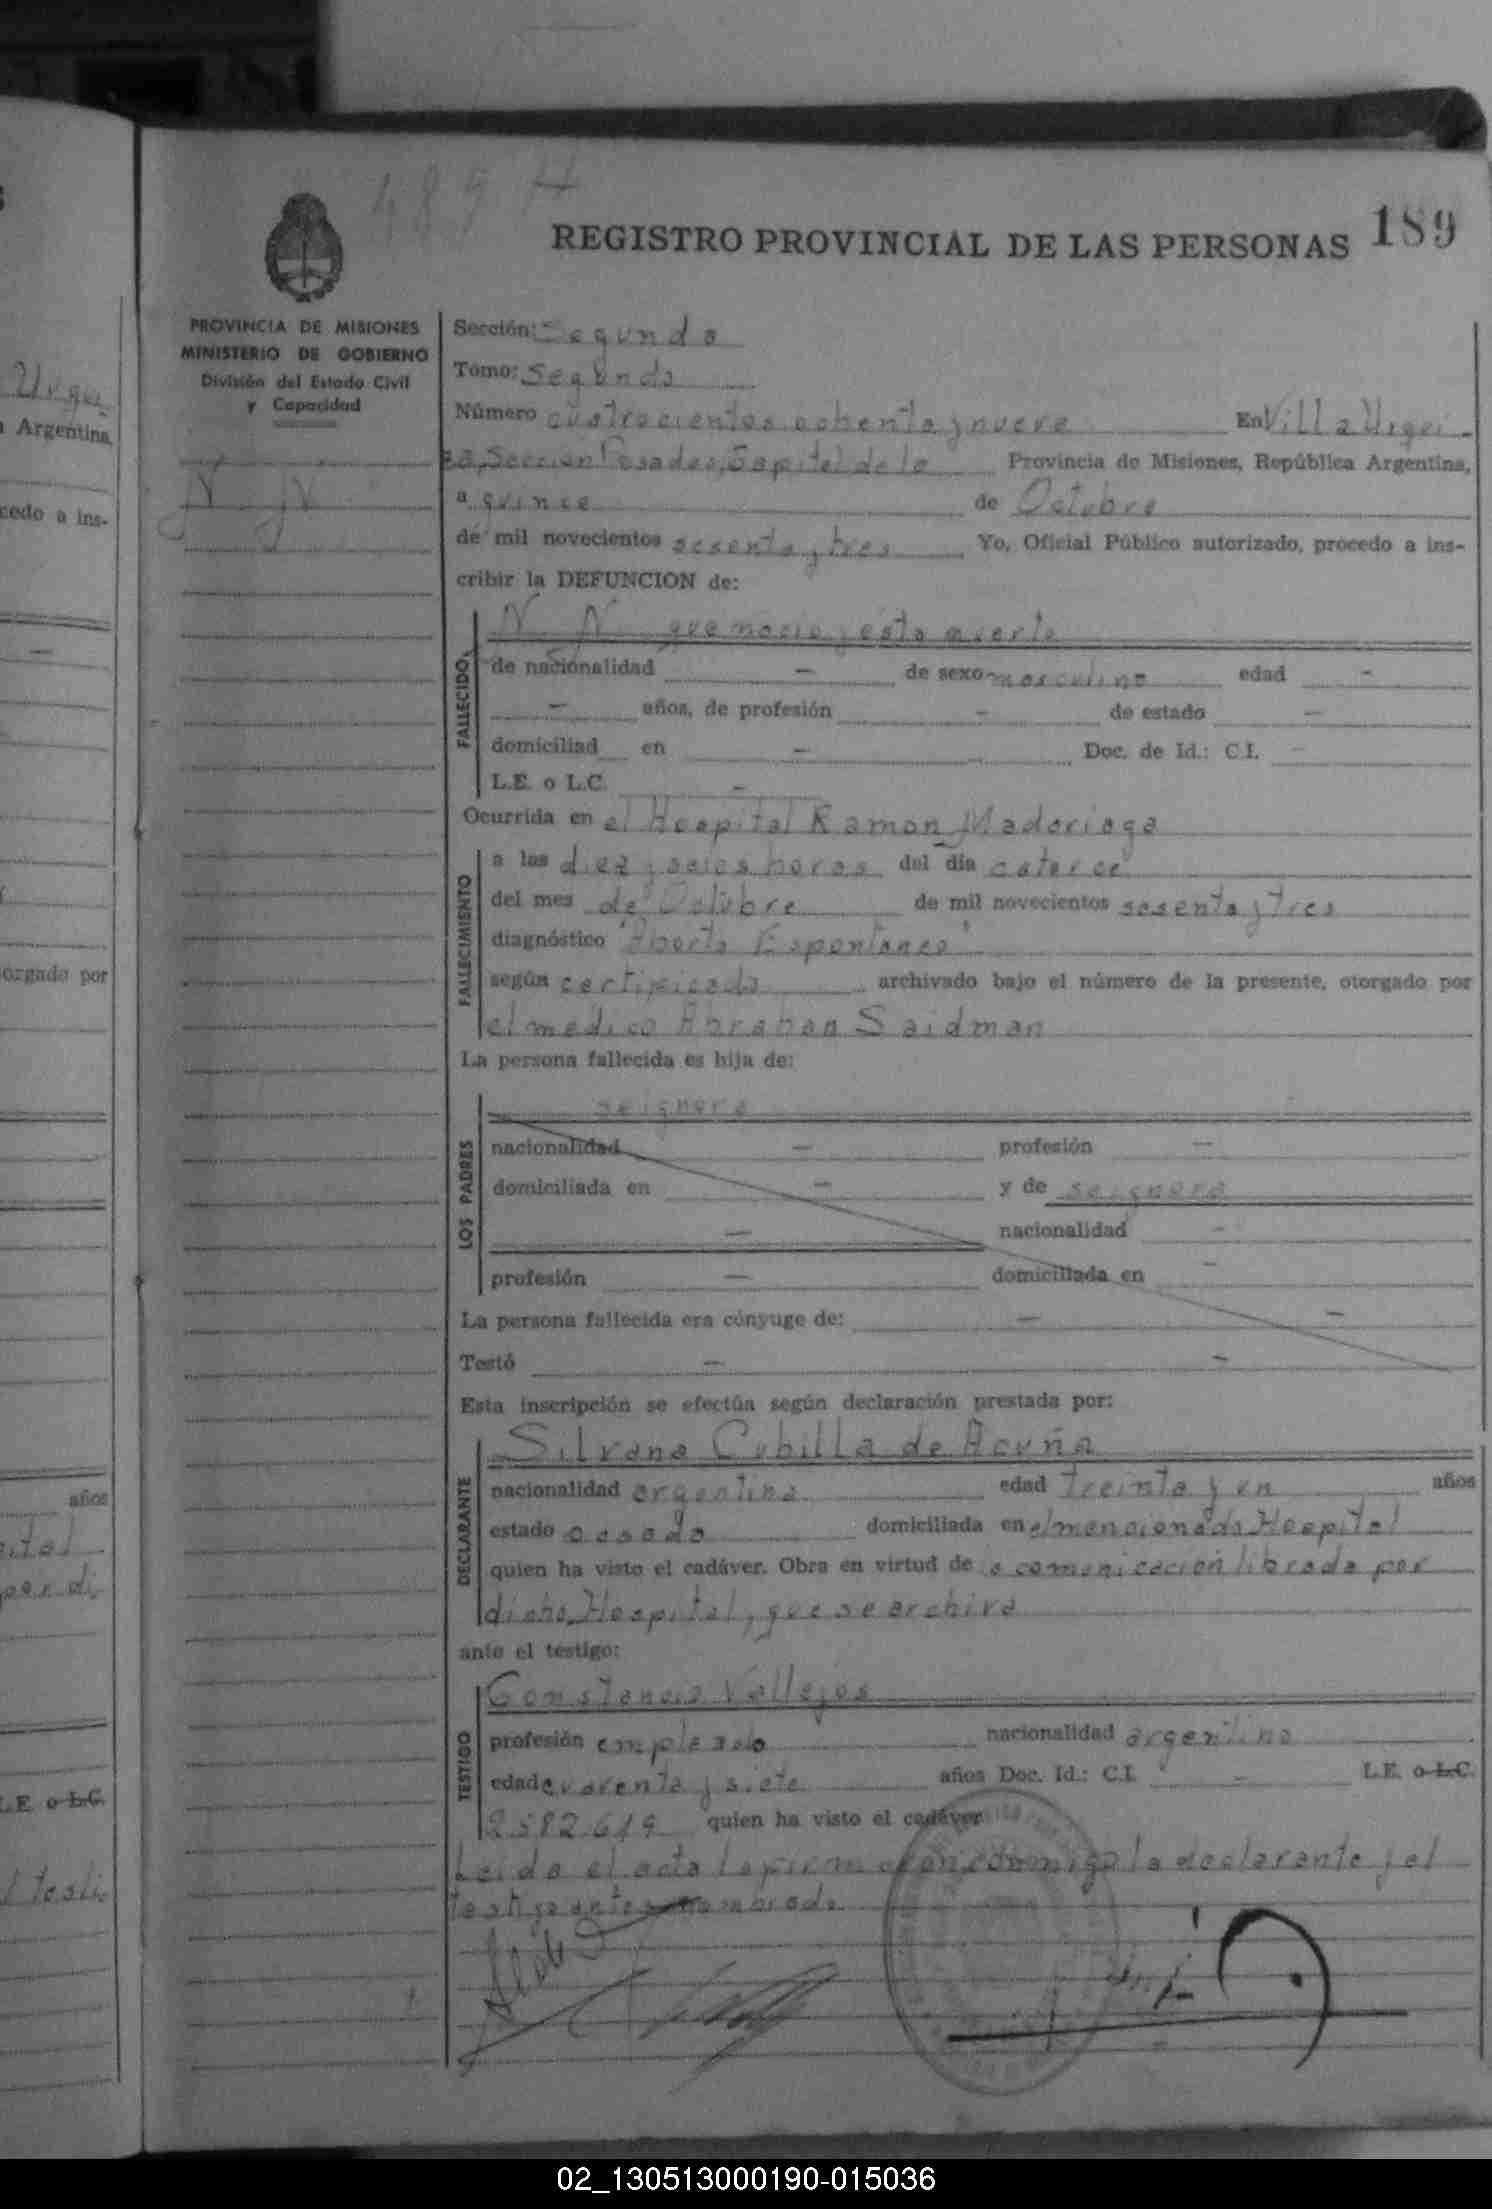 489 H
REGISTRO PROVINCIAL DE LAS PERSONAS 189
PROVINCIA DE MISIONES
MINISTERIO DE GOBIERNO
División del Estado Civil
y Capacidad
N. N.
Sección: Segunda
Tomo: Segundo
Número cuatrocientos ochenta y nueve En Villa Urqui-
za, Sección Posadas, Capital de la Provincia de Misiones, República Argentina,
a quince de Octubre
de mil novecientos sesenta y tres Yo, Oficial Público autorizado, procedo a ins-
cribir la DEFUNCION de:
N. N. que nacio y esta muerto
FALLECIDO
de nacionalidad — de sexo masculino edad -
— años, de profesión - de estado —
domiciliad en — Doc. de Id.: C.I. —
L.E. o L.C. -
Ocurrida en el Hospital Ramon Madariaga
FALLECIMIENTO
a las diez y seis horas del día catorce
del mes de Octubre de mil novecientos sesenta y tres
diagnóstico "Aborto Espontaneo"
según certificado archivado bajo el número de la presente, otorgado por
el medico Abrahan Saidman
La persona fallecida es hija de:
LOS PADRES
se ignora
nacionalidad — profesión —
domiciliada en — y de se ignora
— nacionalidad -
profesión — domiciliada en —
La persona fallecida era cónyuge de: — —
Testó — —
Esta inscripción se efectúa según declaración prestada por:
DECLARANTE
Silvana Cubilla de Acuña
nacionalidad argentina edad treinta y un años
estado casada domiciliada en el mencionado Hospital
quien ha visto el cadáver. Obra en virtud de la comunicación librada por
dicho Hospital, que se archiva
ante el testigo:
TESTIGO
Constancio Vallejos
profesión empleado nacionalidad argentino
edad cuarenta y siete años Doc. Id.: C.I. — L.E. o L.C.
2582619 quien ha visto el cadáver
Leida el acta la firman con conmigo la declarante y el
testigo antes nombrado.
Urqui
a Argentina,
cedo a ins-
orgado por
años
ital
por di
L.E. o L.C.
l testi
02_130513000190-015036